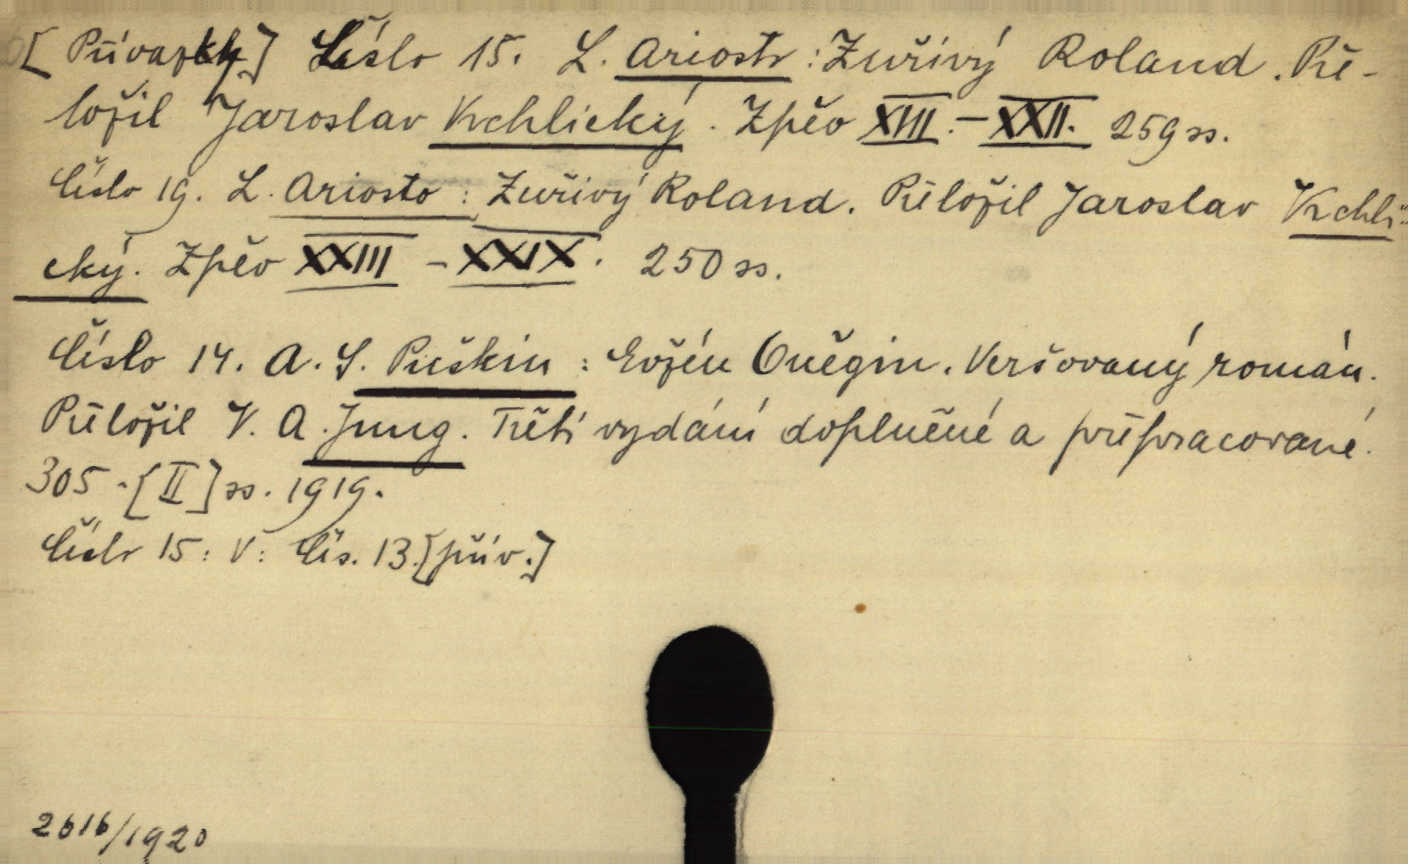 [Přívazky] Číslo 15. L. Ariosto: Zuřivý Roland. Pře-
ložil Jaroslav Vrchlický. Zpěv XIII.–XXII. 259 ss.
Číslo 19. L. Ariosto: Zuřivý Roland. Přeložil Jaroslav Vrchli-
cký. Zpěv XXIII – XXIX. 250 ss.
Číslo 14. A. S. Puškin: Evžen Oněgin. Veršovaný román.
Přeložil V. A. Jung. Třetí vydání doplněné a přepracované.
305-[II] ss. 1919.
Číslo 15: V: Čís. 13. [přív.]
2616/1920